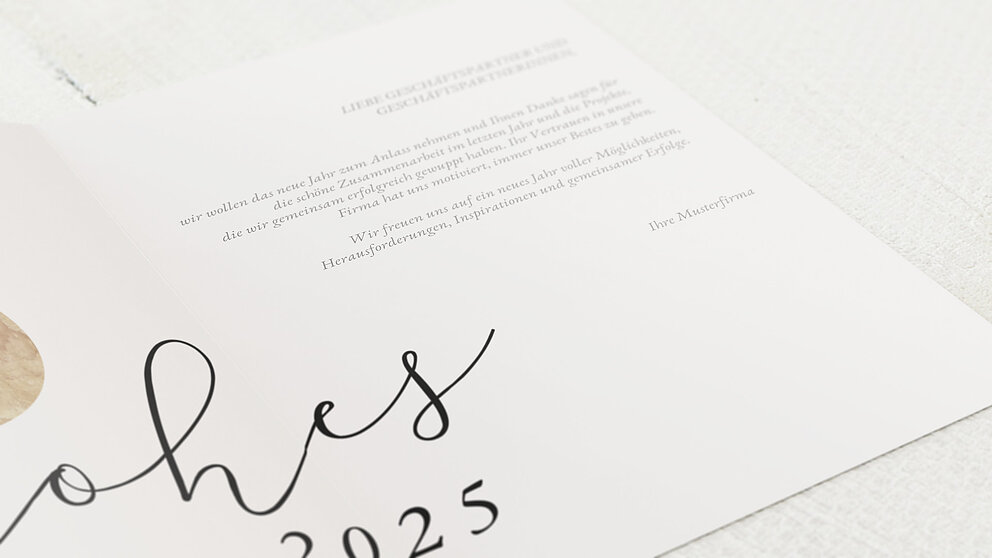 LIEBE GESCHÄFTSPARTNER UND
GESCHÄFTSPARTNERINNEN,
wir wollen das neue Jahr zum Anlass nehmen und Ihnen Danke sagen für
die schöne Zusammenarbeit im letzten Jahr und die Projekte,
die wir gemeinsam erfolgreich gewuppt haben. Ihr Vertrauen in unsere
Firma hat uns motiviert, immer unser Bestes zu geben.
Wir freuen uns auf ein neues Jahr voller Möglichkeiten,
Herausforderungen, Inspirationen und gemeinsamer Erfolge.
Ihre Musterfirma
ohes
2025